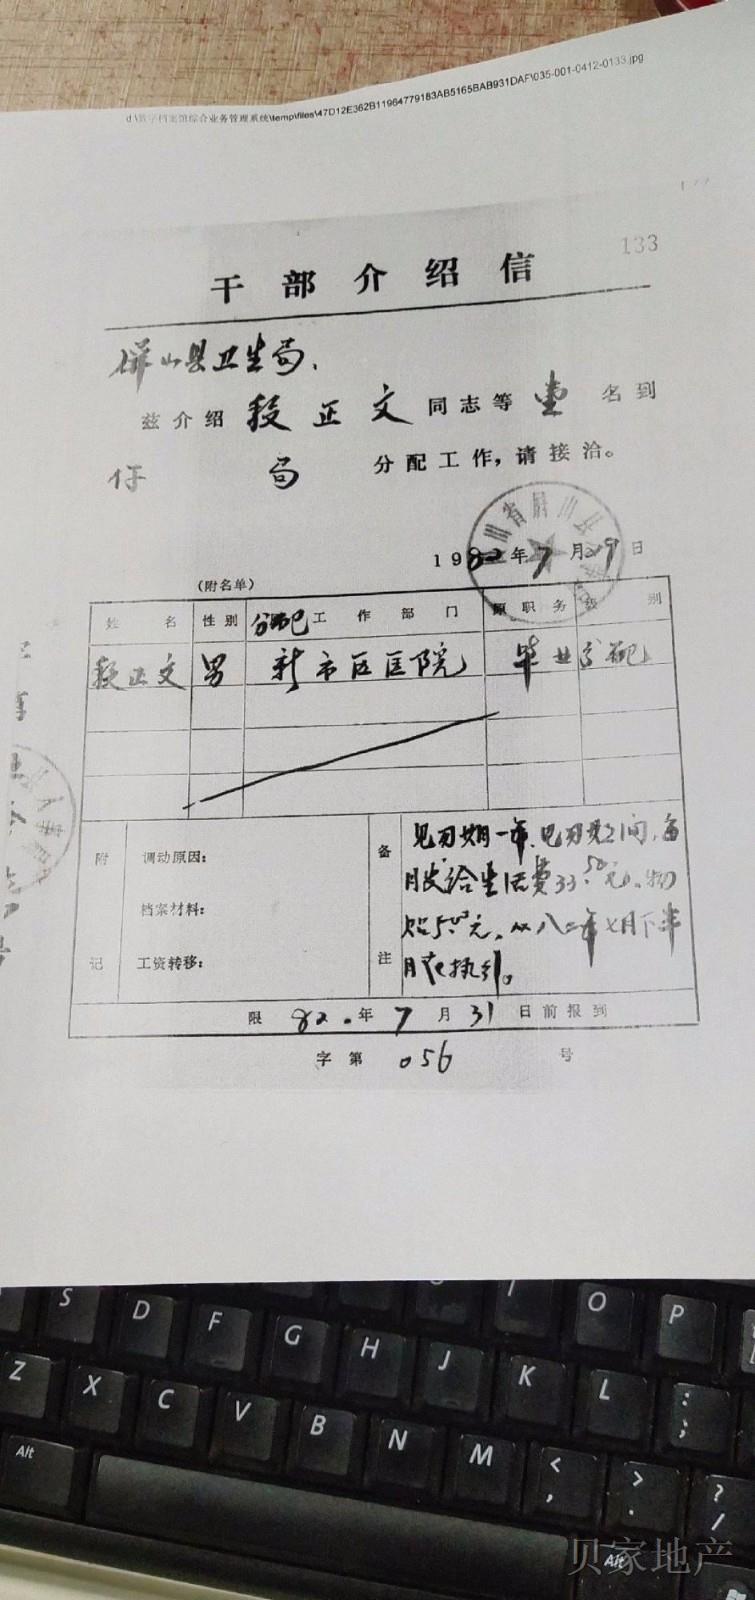 d:\数字档案馆综合业务管理系统\temp\files\47D12E362B11964779183AB5165BAB931DAF\035-001-0412-0133.jpg
133
干部介绍信
屏山县卫生局、
兹介绍 段正文 同志等 壹 名到
你 局 分配工作，请接洽。
1982年7月29日
(附名单)
姓名 性别 分配工作部门 原职务级别
段正文 男 新市区医院 毕业分配
附记
调动原因：
档案材料：
工资转移：
备注
见习期一年，见习期之间，每
月发给生活费33.50元。物
贴5.00元，从八二年七月下半
月起执行。
限 82.年 7 月 31 日前报到
字第 056 号
S D F G H J K L : ;
O P
Z X C V B N M < , > . ? /
Alt
Alt
贝家地产